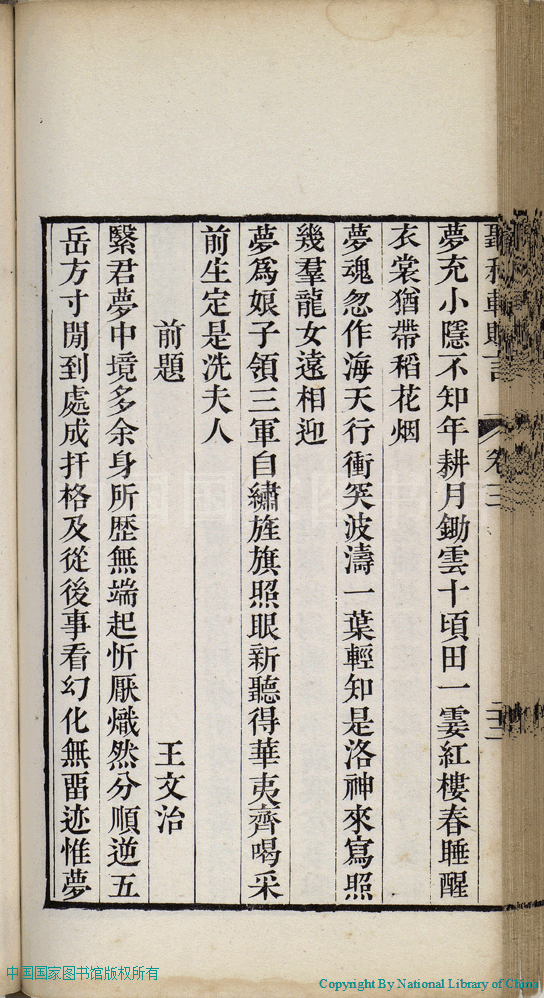 聽秋軒贈言 卷三
夢充小隱不知年耕月鋤雲十頃田一霎紅樓春睡醒
衣裳猶帶稻花烟
夢魂忽作海天行衝突波濤一葉輕知是洛神來寫照
幾羣龍女遠相迎
夢爲娘子領三軍自繡旌旗照眼新聽得華夷齊喝采
前生定是洗夫人
前題 王文治
繄君夢中境多余身所歴無端起忻厭熾然分順逆五
岳方寸閒到處成扞格及從後事看幻化無畱迹惟夢
中国国家图书馆
中国国家图书馆版权所有
Copyright By National Library of China